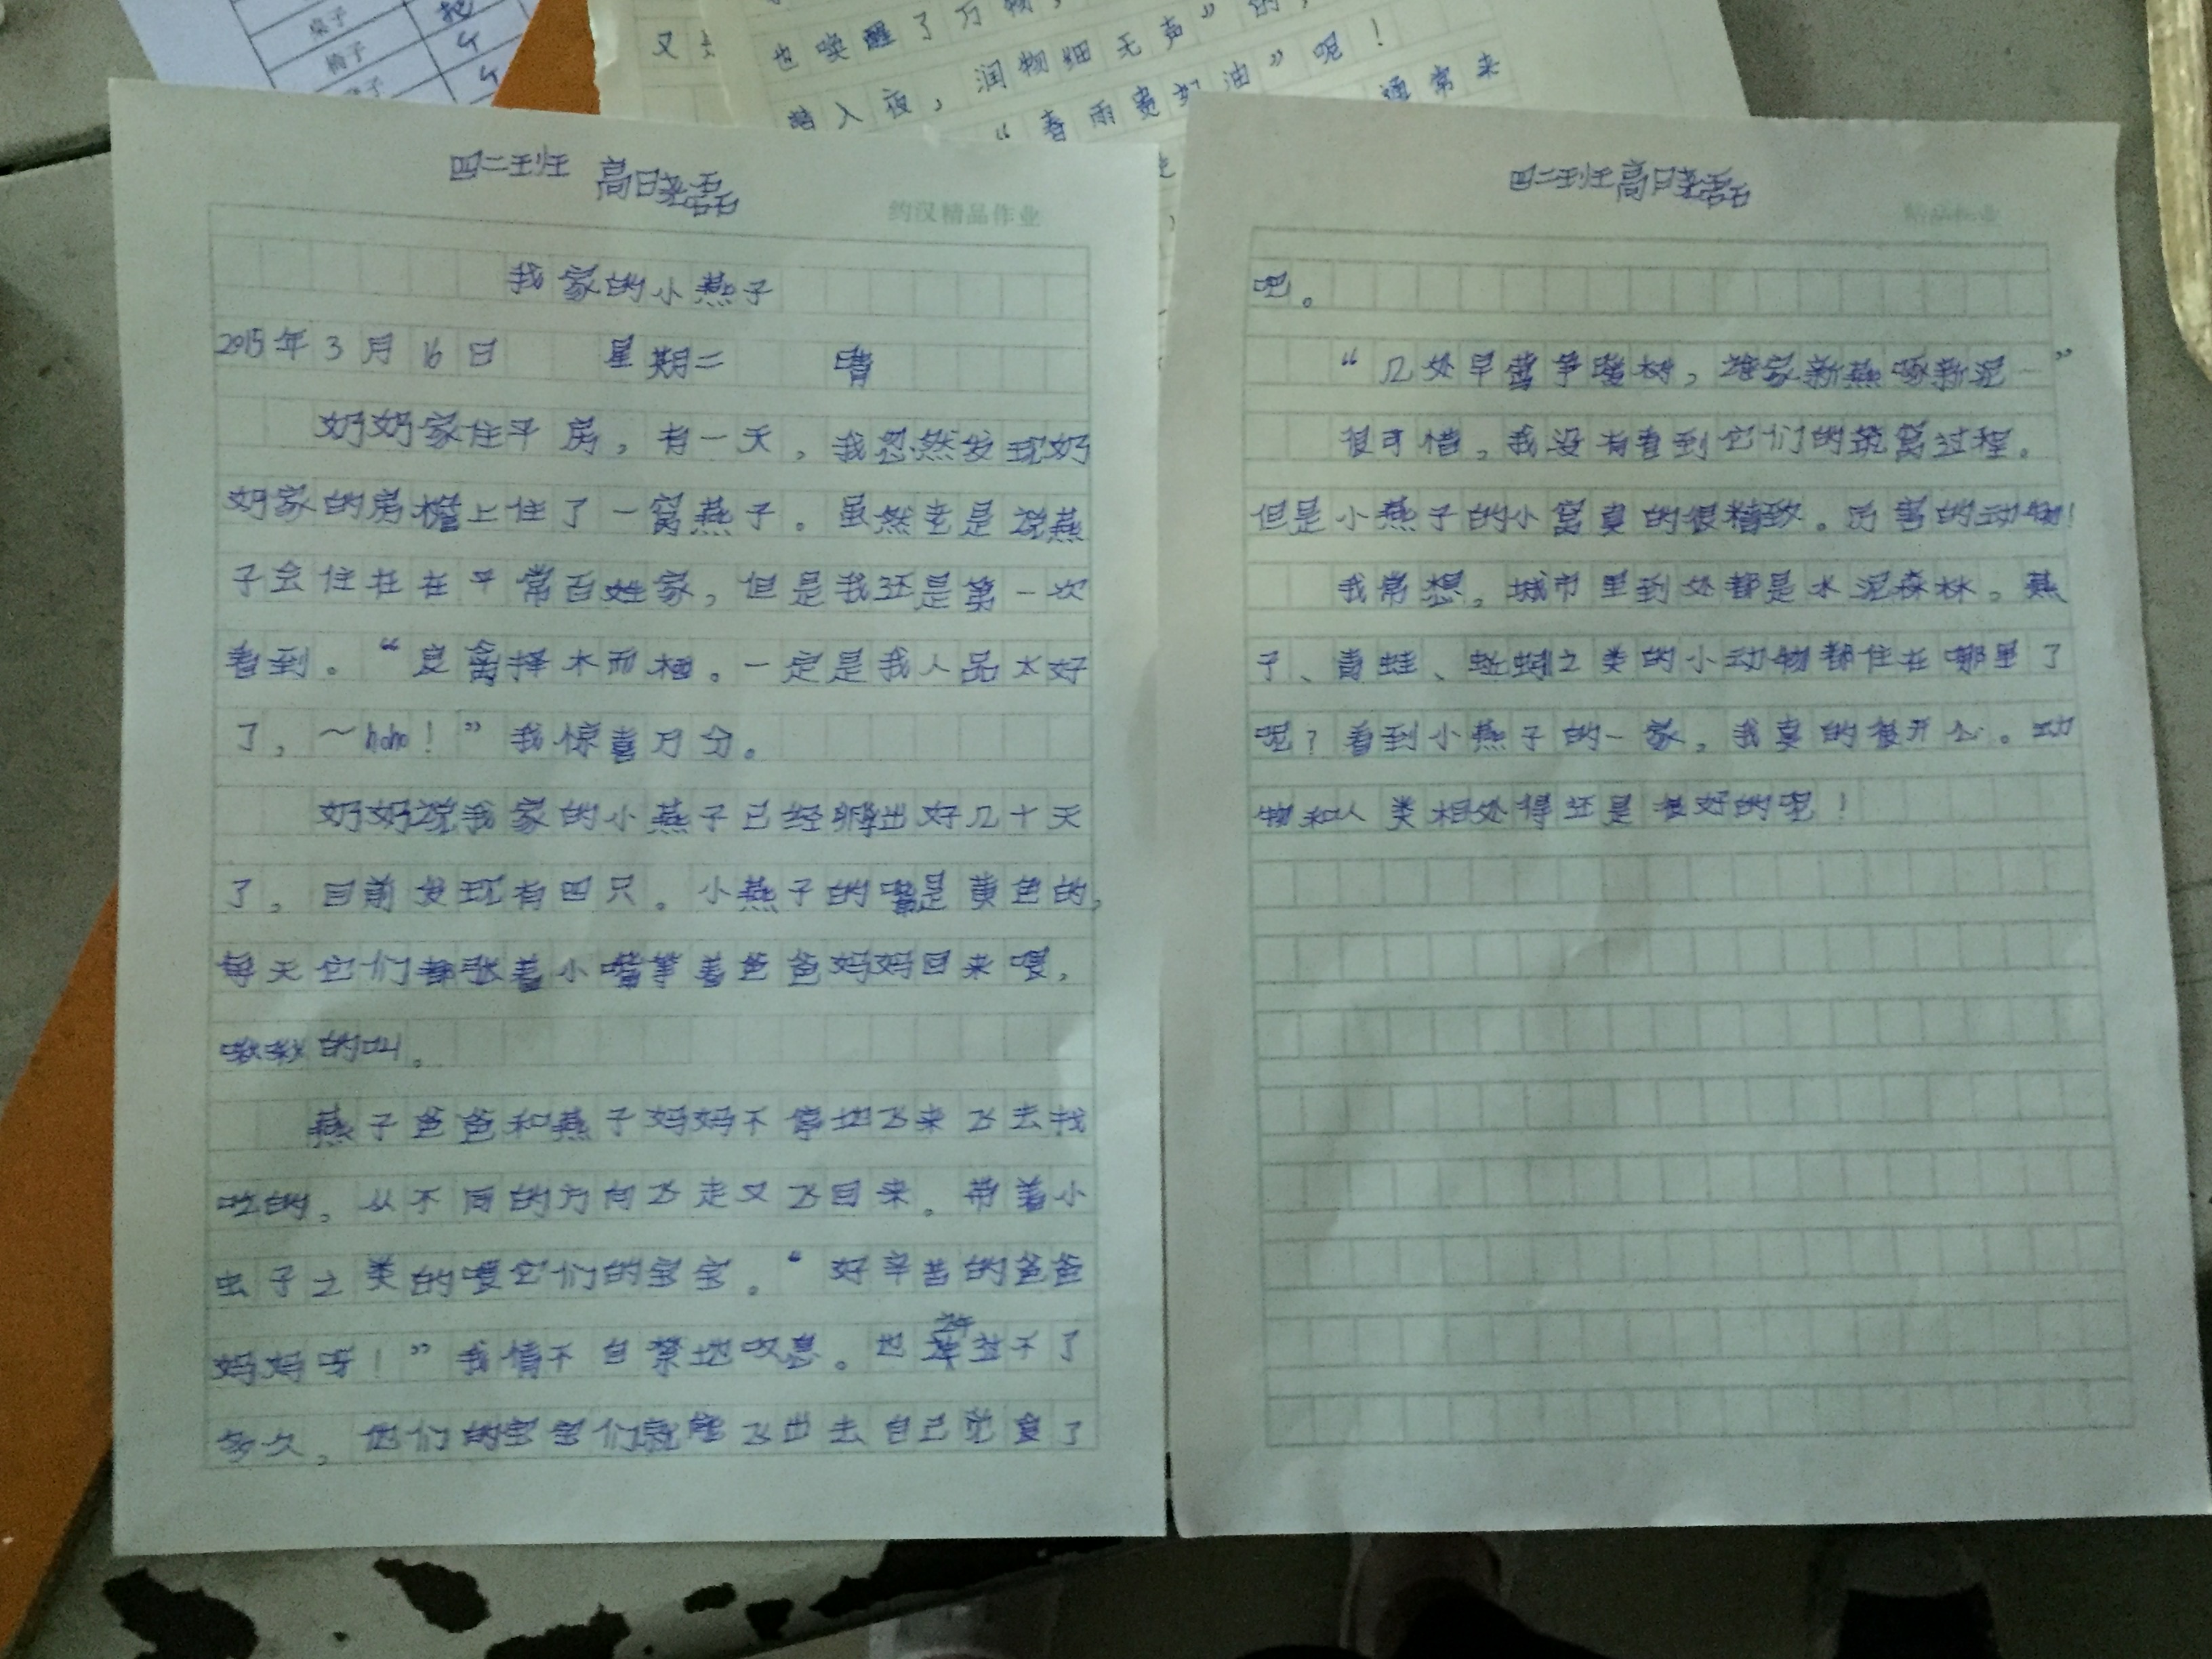 桌子
椅子
把
个
个
又
也唤醒了万物,
潜入夜,润物细无声”的,
“春雨贵如油”呢!
通常来
四二班 高日
约汉精品作业
我家的小燕子
2015年3月16日 星期二 晴
奶奶家住平房,有一天,我忽然发现奶
奶家的房檐上住了一窝燕子。虽然老是说燕
子会住在在平常百姓家,但是我还是第一次
看到。“良禽择木而栖。一定是我人品太好
了,~hoho!”我惊喜万分。
奶奶说我家的小燕子已经孵出好几十天
了,目前发现有四只。小燕子的嘴是黄色的,
每天它们都张着小嘴等着爸爸妈妈回来喂,
啾啾的叫。
燕子爸爸和燕子妈妈不停地飞来飞去找
吃的,从不同的方向飞走又飞回来,带着小
虫子之类的喂它们的宝宝。“好辛苦的爸爸
妈妈呀!”我情不自禁地叹息。也许过不了
多久,他们的宝宝们就能飞出去自己觅食了
四二班 高日
吧。
“几处早莺争暖树,谁家新燕啄新泥—”
很可惜,我没有看到它们的筑窝过程。
但是小燕子的小窝真的很精致。厉害的动物!
我常想,城市里到处都是水泥森林,燕
子、青蛙、蚯蚓之类的小动物都住在哪里了
呢?看到小燕子的一家,我真的很开心。动
物和人类相处得还是很好的呢!